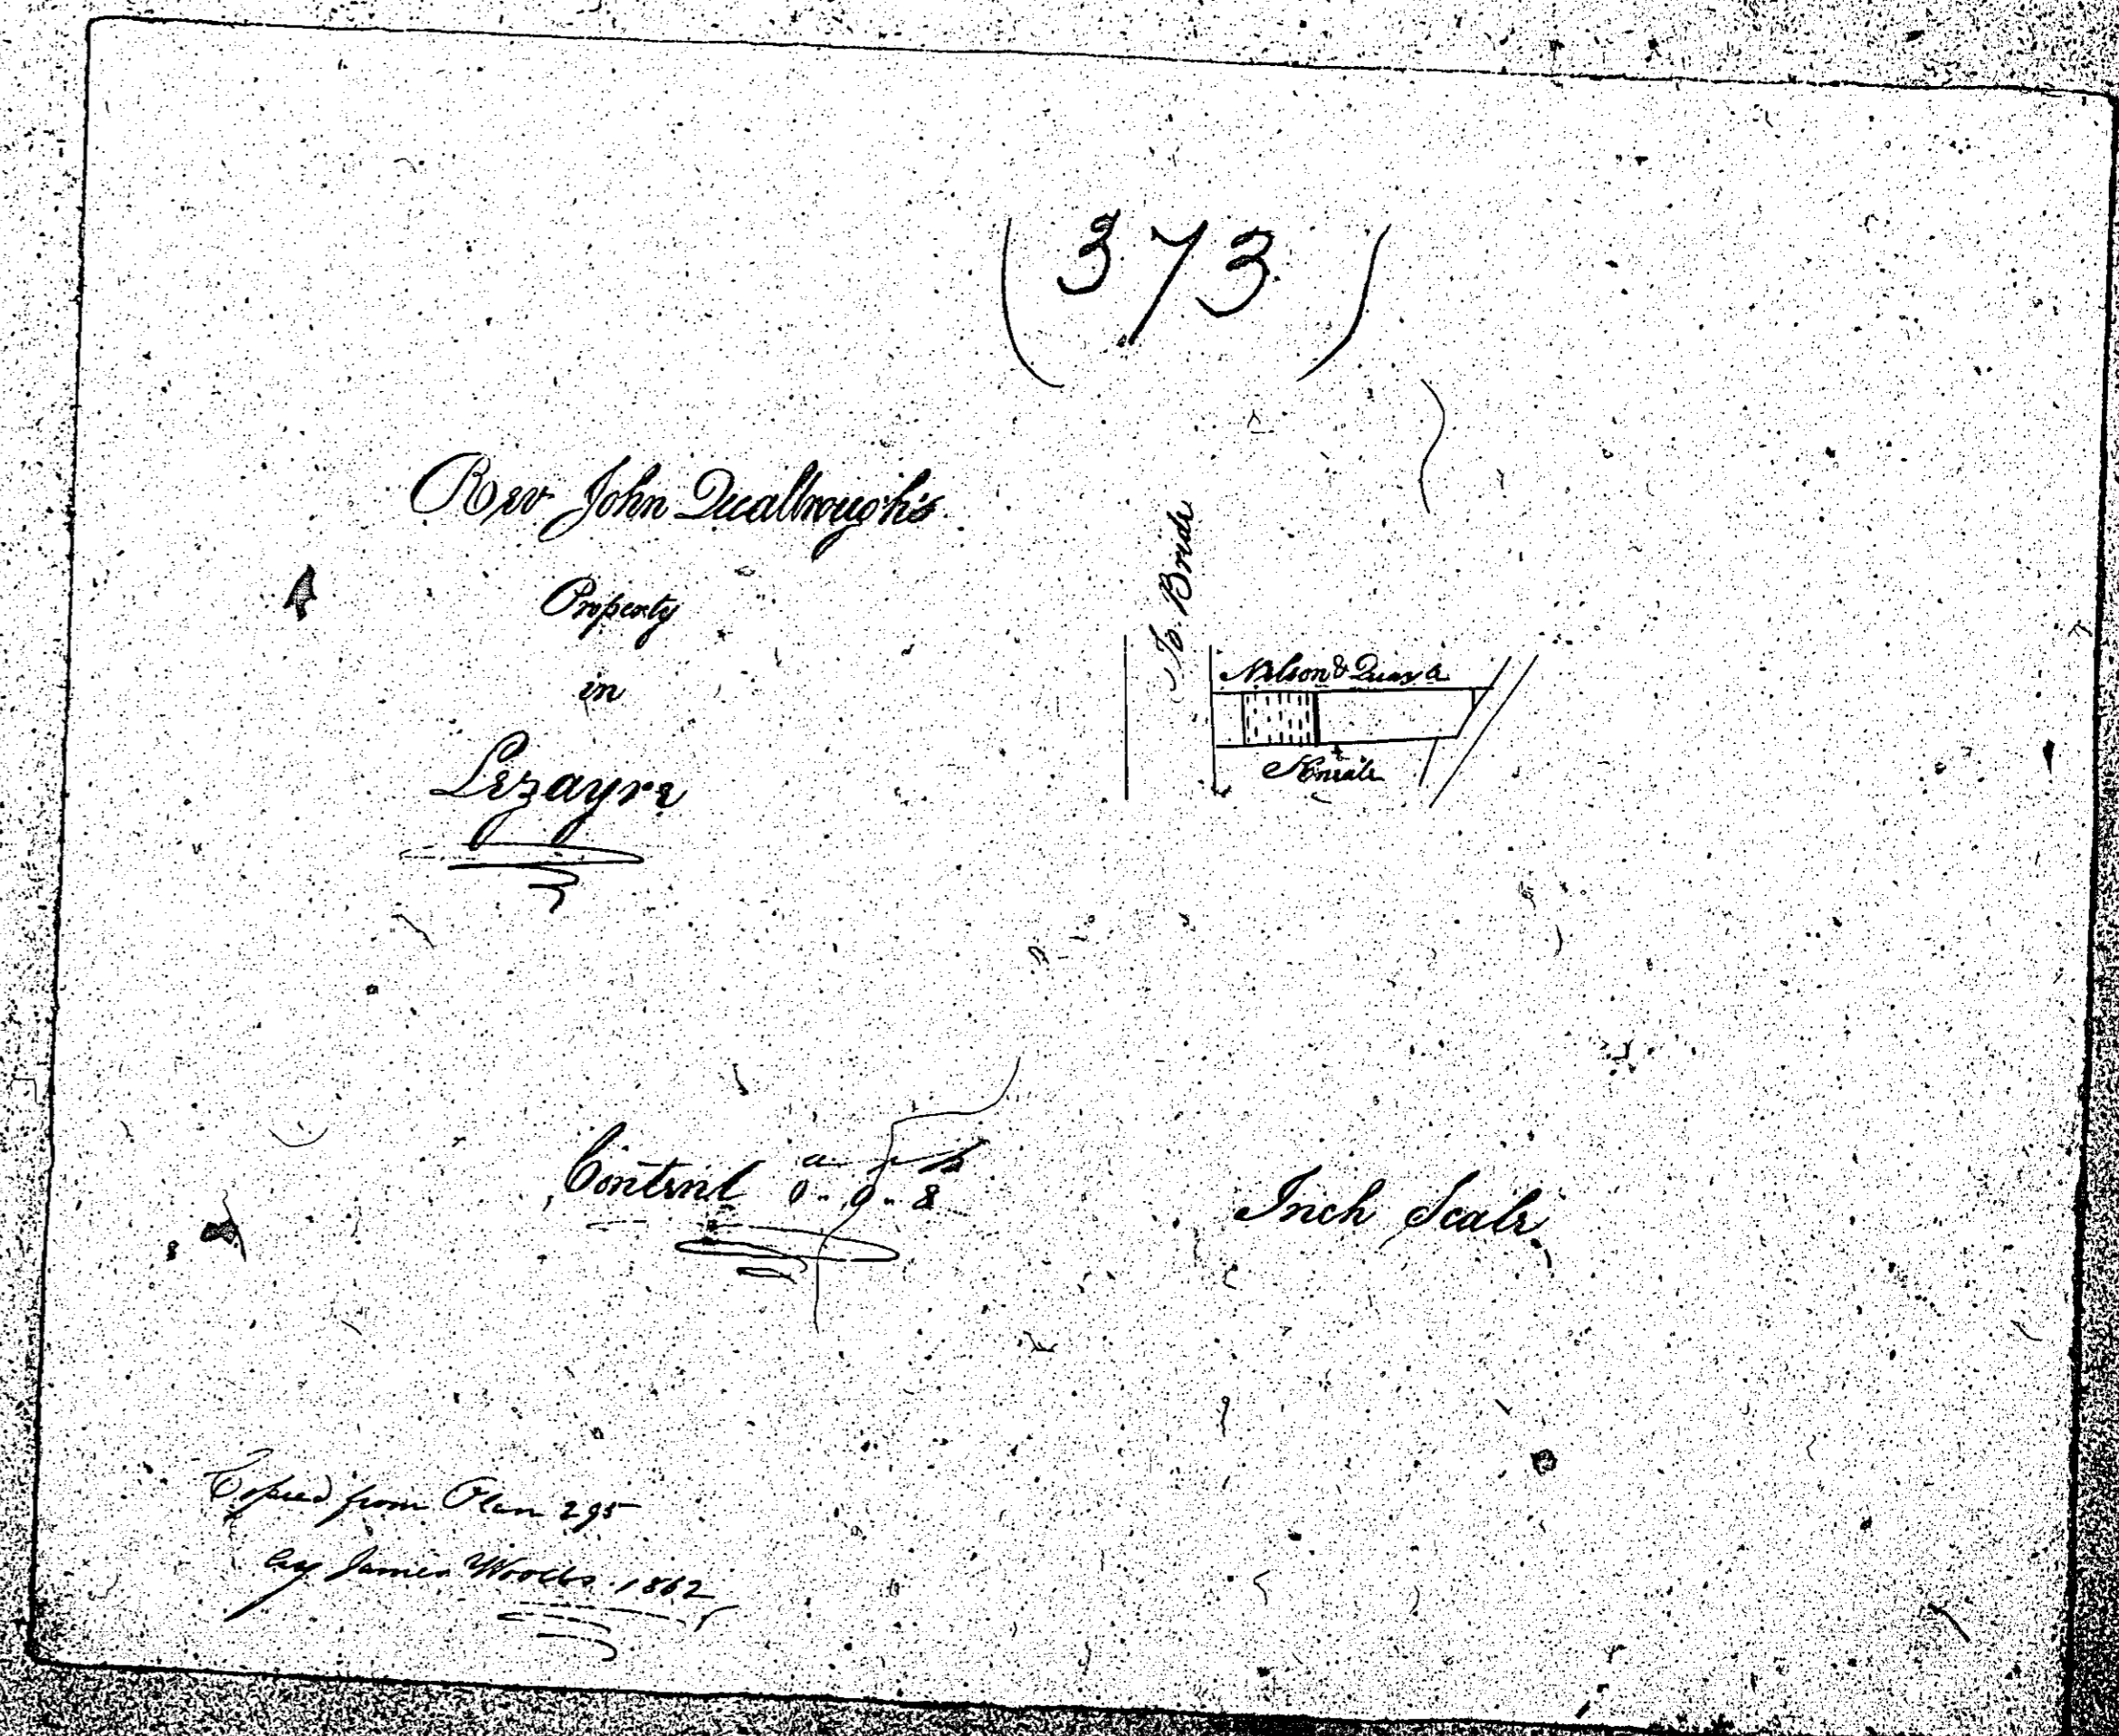 (373)
Rev John Qualtrough's
Property
in
Lezayre
To Bride
Nelson & Quay
Kneale
Content
a r p
0 .. 0 .. 8
Inch Scale
Copied from Plan 295
by James Woods 1862